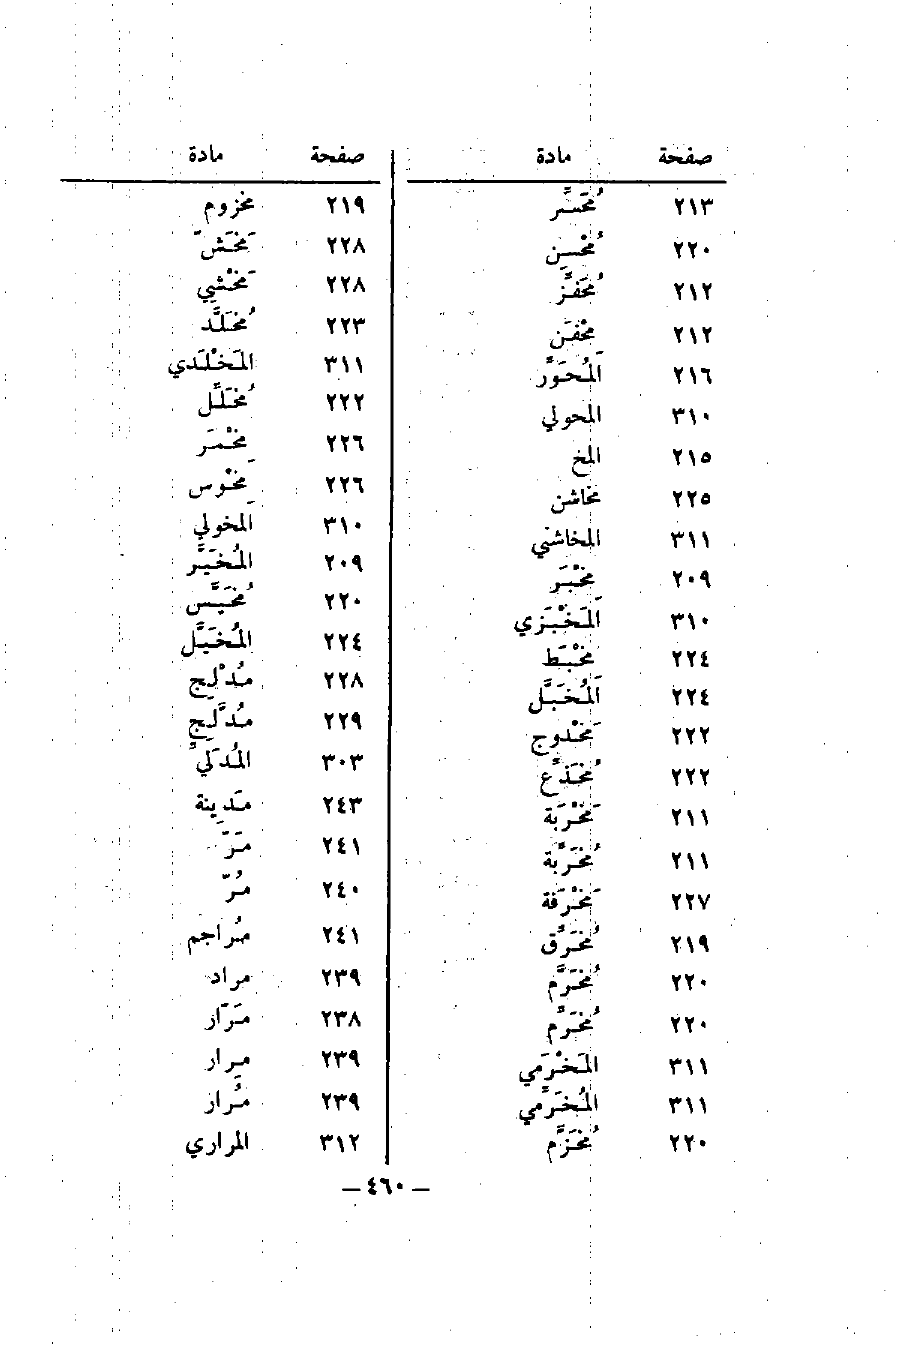 صفحة مادة
٢١٣ مُحَسِّر
٢٢٠ مُحْسِن
٢١٢ مُحَفَّز
٢١٢ مِحْفَن
٢١٦ المُحَوَّر
٣١٠ المحولي
٢١٥ المخ
٢٢٥ مخاشن
٣١١ المخاشني
٢٠٩ مَخْبَر
٣١٠ المَخْبَزي
٢٢٤ مِخْبَط
٢٢٤ المُخَبَّل
٢٢٢ مَخْدوج
٢٢٢ مُخَذَّع
٢١١ مَخْرَبة
٢١١ مُخَرَّبة
٢٢٧ مَخْرَفة
٢١٩ مُخَرِّق
٢٢٠ مُخَرَّم
٢٢٠ مُخَرِّم
٣١١ المَخْرَمي
٣١١ المُخَرِّمي
٢٢٠ مُخَزَّم
صفحة مادة
٢١٩ مخزوم
٢٢٨ مَخَشّ
٢٢٨ مَخْشِي
٢٢٣ مُخَلَّد
٣١١ المَخْلَدي
٢٢٢ مُخَلَّل
٢٢٦ مِخْمَر
٢٢٦ مَخُوس
٣١٠ المَخولي
٢٠٩ المُخَيَّر
٢٢٠ مُخَيَّس
٢٢٤ المُخَيَّل
٢٢٨ مُدْلِج
٢٢٩ مُدَّلِج
٣٠٣ المُدِلّي
٢٤٣ مَدِينة
٢٤١ مَرّ
٢٤٠ مُرّ
٢٤١ مُراجم
٢٣٩ مراد
٢٣٨ مَرّار
٢٣٩ مرار
٢٣٩ مُرار
٣١٢ المراري
– ٤٦٠ –